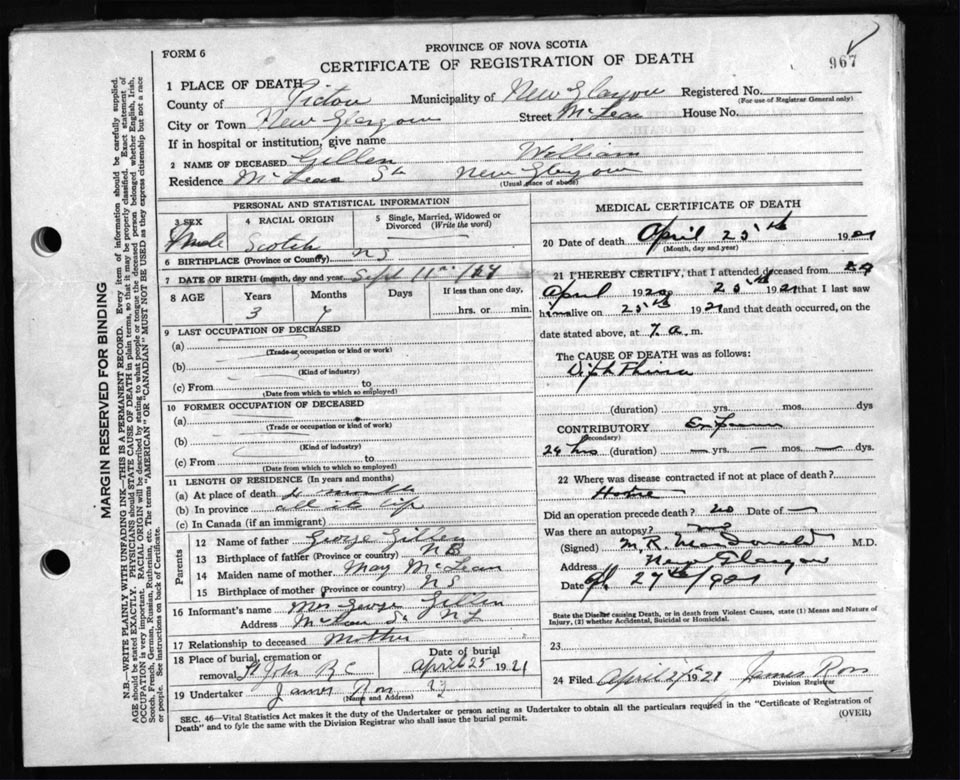 FORM 6
PROVINCE OF NOVA SCOTIA
CERTIFICATE OF REGISTRATION OF DEATH
967
1 PLACE OF DEATH
County of Pictou Municipality of New Glasgow Registered No.
(For use of Registrar General only)
City or Town New Glasgow Street McLean House No.
If in hospital or institution, give name
2 NAME OF DECEASED Gillen William
Residence McLean St New Glasgow
(Usual place of abode)
PERSONAL AND STATISTICAL INFORMATION
3 SEX Male
4 RACIAL ORIGIN Scotch
5 Single, Married, Widowed or Divorced (Write the word)
6 BIRTHPLACE (Province or County) NS
7 DATE OF BIRTH (month, day and year) Sept 11th
8 AGE Years Months Days If less than one day,
3 7 hrs. or min.
9 LAST OCCUPATION OF DECEASED
(a)
(Trade or occupation or kind of work)
(b)
(Kind of industry)
(c) From to
(Date from which to so employed)
10 FORMER OCCUPATION OF DECEASED
(a)
(Trade or occupation or kind of work)
(b)
(Kind of industry)
(c) From to
(Date from which to which so employed)
11 LENGTH OF RESIDENCE (In years and months)
(a) At place of death
(b) In province all its life
(c) In Canada (if an immigrant)
Parents
12 Name of father George Gillen
13 Birthplace of father (Province or country) NB
14 Maiden name of mother May McLean
15 Birthplace of mother (Province or country) NS
16 Informant's name Mrs George Gillen
Address McLean St NG
17 Relationship to deceased Mother
18 Place of burial, cremation or removal St John RC Date of burial April 25 1921
19 Undertaker James Ross
(Name and Address)
MEDICAL CERTIFICATE OF DEATH
20 Date of death April 25th 1921
(Month, day and year)
21 I HEREBY CERTIFY, that I attended deceased from
April 192 25th 1921 that I last saw
him alive on 25th 1921 and that death occurred, on the
date stated above, at 7 a.m.
The CAUSE OF DEATH was as follows:
Diphtheria
(duration) yrs. mos. dys
CONTRIBUTORY
(Secondary)
24 hrs (duration) — yrs. — mos. — dys.
22 Where was disease contracted if not at place of death?
Home
Did an operation precede death? no Date of —
Was there an autopsy? no
(Signed) M. R. MacDonald M.D.
Address New Glasgow
Date 27th
State the Disease causing Death, or in death from Violent Causes, state (1) Means and Nature of
Injury, (2) whether Accidental, Suicidal or Homicidal.
23
24 Filed April 27th 1921 James Ross
Division Registrar
SEC. 46—Vital Statistics Act makes it the duty of the Undertaker or person acting as Undertaker to obtain all the particulars required in the "Certificate of Registration of
Death" and to fyle the same with the Division Registrar who shall issue the burial permit.
(OVER)
MARGIN RESERVED FOR BINDING
N.B.—WRITE PLAINLY WITH UNFADING INK—THIS IS A PERMANENT RECORD. Every item of information should be carefully supplied.
AGE should be stated EXACTLY. PHYSICIANS should STATE CAUSE OF DEATH in plain terms, so that it may be properly classified. Exact statement of
OCCUPATION is very important. RACIAL ORIGIN will be described by stating to what people or tongue the deceased person belonged whether English, Irish,
Scotch, French, German, Russian, Ruthenian, etc. The terms "AMERICAN" OR "CANADIAN" MUST NOT BE USED as they express citizenship but not a race
or people. See instructions on back of Certificate.